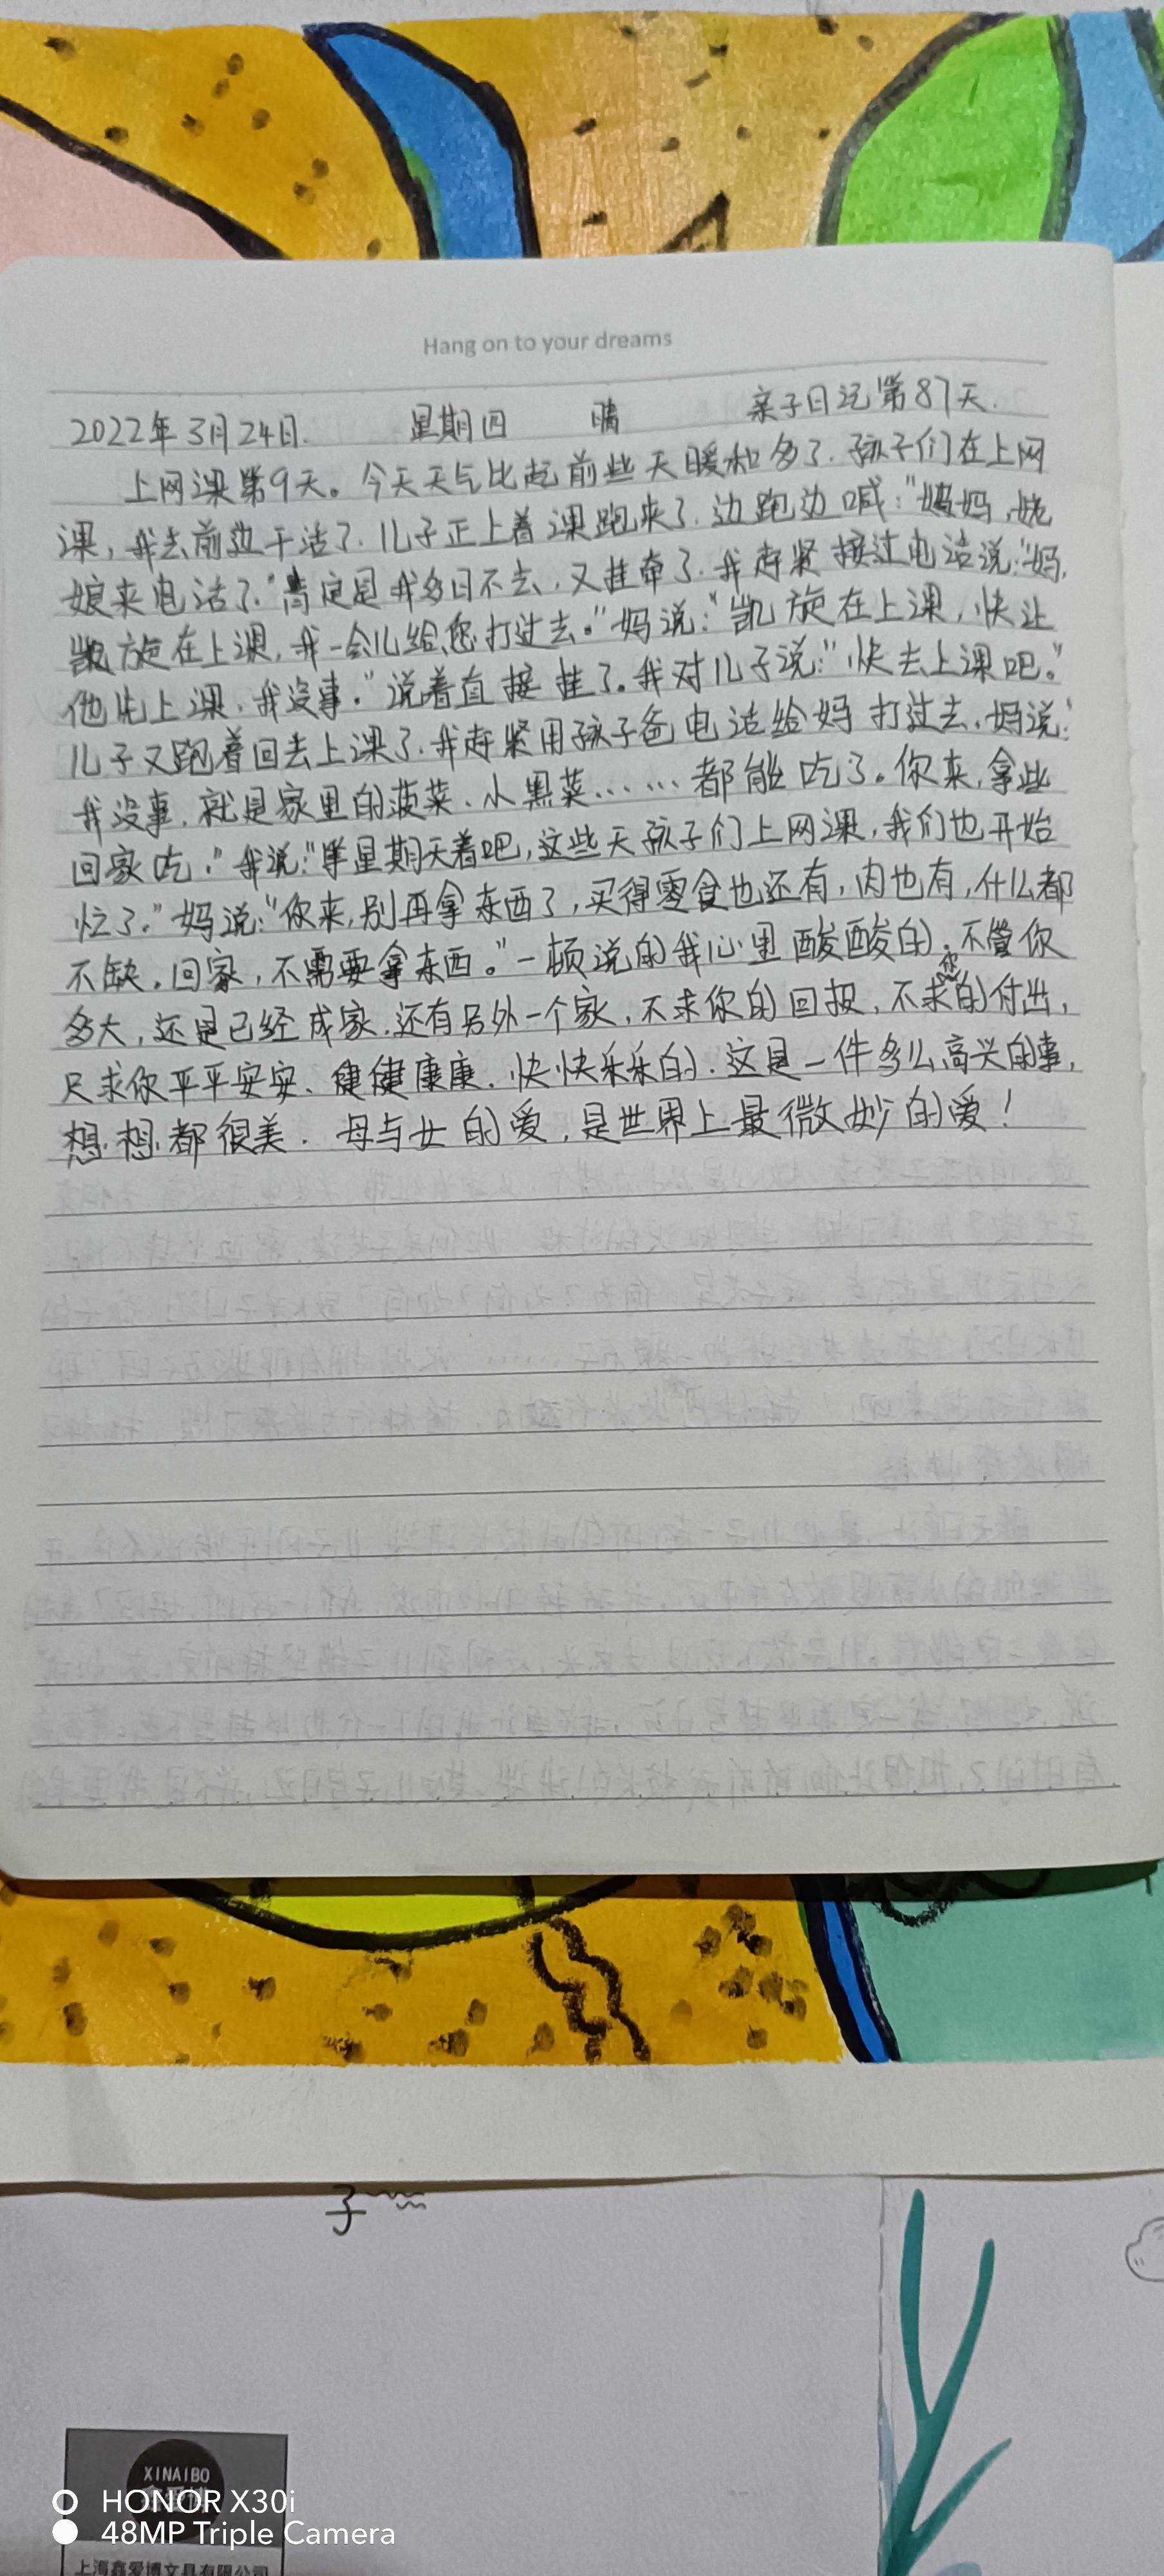 Hang on to your dreams
2022年3月24日. 星期四 晴 亲子日记第87天.
上网课第9天。今天天气比起前些天暖和多了.孩子们在上网
课,我去前边干活了.儿子正上着课跑来了.边跑边喊:"妈妈,姥
娘来电话了."肯定是我多日不去,又挂牵了.我赶紧接过电话说:"妈,
凯旋在上课,我一会儿给您打过去。"妈说:"凯旋在上课,快让
他先上课,我没事."说着直接挂了。我对儿子说:"快去上课吧。"
儿子又跑着回去上课了.我赶紧用孩子爸电话给妈打过去.妈说:"
我没事,就是家里的菠菜、小黑菜……都能吃了。你来,拿些
回家吃."我说:"等星期天着吧,这些天孩子们上网课,我们也开始
忙了."妈说:"你来,别再拿东西了,买得零食也还有,肉也有,什么都
不缺.回家,不需要拿东西。"一顿说的我心里酸酸的.不管你
多大,还是已经成家.还有另外一个家,不求你的回报,不求您的付出,
只求你平平安安、健健康康.快快乐乐的.这是一件多么高兴的事,
想想都很美.母与女的爱,是世界上最微妙的爱!
子
XINAIBO
上海鑫爱博文具有限公司
HONOR X30i
48MP Triple Camera